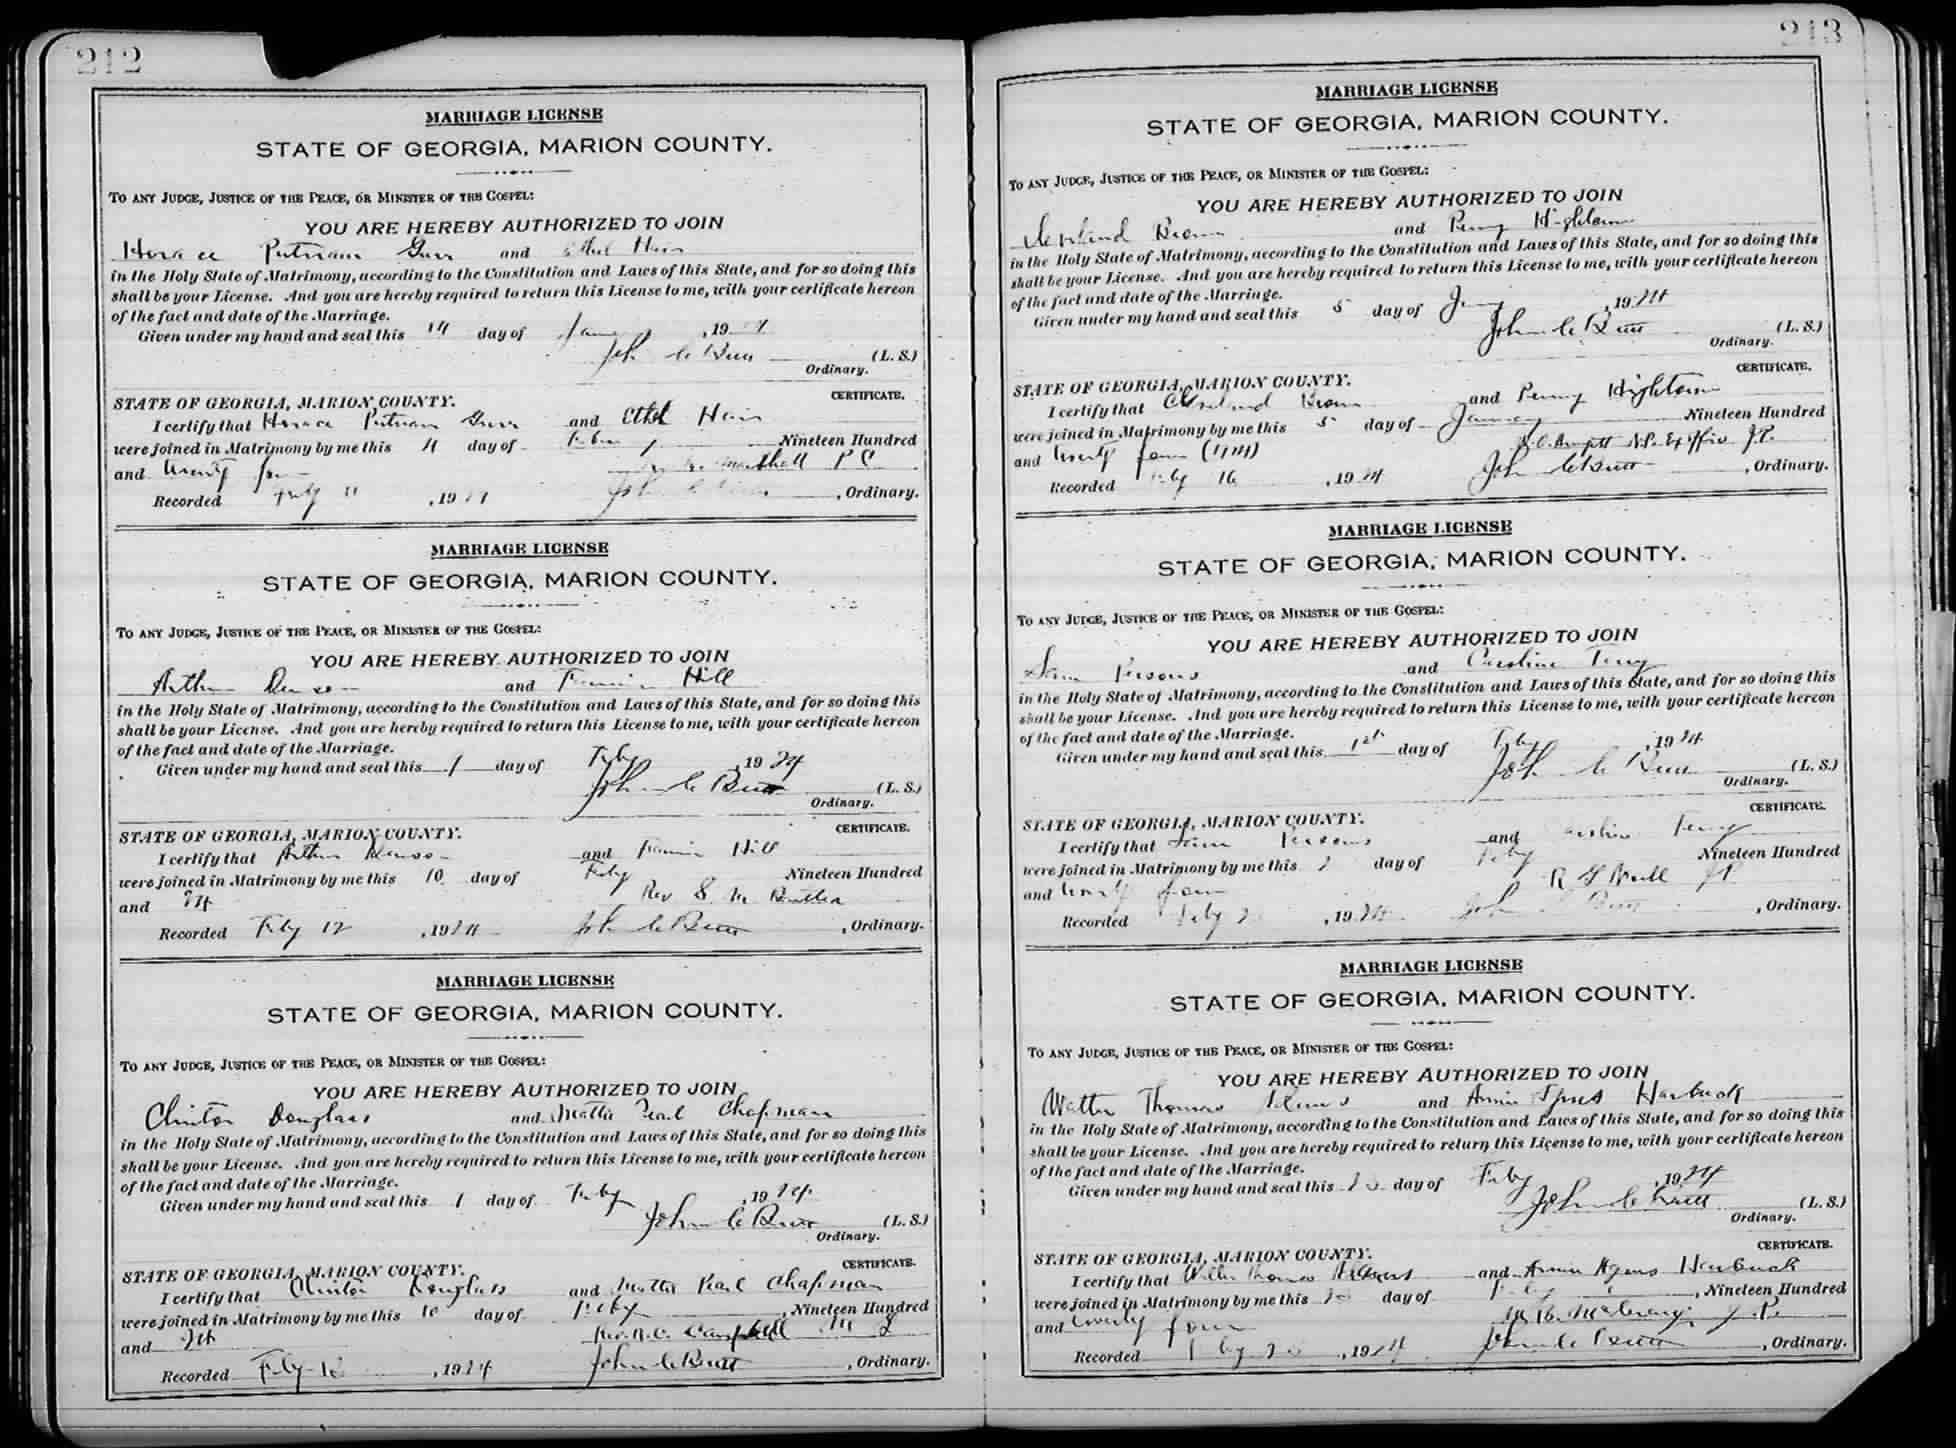 212
MARRIAGE LICENSE
STATE OF GEORGIA, MARION COUNTY.
TO ANY JUDGE, JUSTICE OF THE PEACE, OR MINISTER OF THE GOSPEL:
YOU ARE HEREBY AUTHORIZED TO JOIN
Horace Putnam and Ethel Hair
in the Holy State of Matrimony, according to the Constitution and Laws of this State, and for so doing this
shall be your License. And you are hereby required to return this License to me, with your certificate hereon
of the fact and date of the Marriage.
Given under my hand and seal this day of , 19
John C Butt (L. S.)
Ordinary.
CERTIFICATE.
STATE OF GEORGIA, MARION COUNTY.
I certify that Horace Putnam and Ethel Hair
were joined in Matrimony by me this 11 day of Nineteen Hundred
and twenty four Marshall
Recorded Feby 11 , 19 John C Butt , Ordinary.
MARRIAGE LICENSE
STATE OF GEORGIA, MARION COUNTY.
TO ANY JUDGE, JUSTICE OF THE PEACE, OR MINISTER OF THE GOSPEL:
YOU ARE HEREBY AUTHORIZED TO JOIN
Arthur and Fannie Hill
in the Holy State of Matrimony, according to the Constitution and Laws of this State, and for so doing this
shall be your License. And you are hereby required to return this License to me, with your certificate hereon
of the fact and date of the Marriage.
Given under my hand and seal this day of Feby , 19 24
John C Butt (L. S.)
Ordinary.
CERTIFICATE.
STATE OF GEORGIA, MARION COUNTY.
I certify that Arthur and Fannie Hill
were joined in Matrimony by me this 10 day of Feby Nineteen Hundred
and 24 Rev S. M.
Recorded Feby 12 , 19 24 John C Butt , Ordinary.
MARRIAGE LICENSE
STATE OF GEORGIA, MARION COUNTY.
TO ANY JUDGE, JUSTICE OF THE PEACE, OR MINISTER OF THE GOSPEL:
YOU ARE HEREBY AUTHORIZED TO JOIN
Clinton Douglass and Mattie Pearl Chapman
in the Holy State of Matrimony, according to the Constitution and Laws of this State, and for so doing this
shall be your License. And you are hereby required to return this License to me, with your certificate hereon
of the fact and date of the Marriage.
Given under my hand and seal this day of Feby , 19 24
John C Butt (L. S.)
Ordinary.
CERTIFICATE.
STATE OF GEORGIA, MARION COUNTY.
I certify that Clinton Douglass and Mattie Pearl Chapman
were joined in Matrimony by me this 10 day of Feby , Nineteen Hundred
and 24 Rev. Campbell
Recorded Feby 12 , 19 24 John C Butt , Ordinary.
213
MARRIAGE LICENSE
STATE OF GEORGIA, MARION COUNTY.
TO ANY JUDGE, JUSTICE OF THE PEACE, OR MINISTER OF THE GOSPEL:
YOU ARE HEREBY AUTHORIZED TO JOIN
Cleveland Brown and Hightower
in the Holy State of Matrimony, according to the Constitution and Laws of this State, and for so doing this
shall be your License. And you are hereby required to return this License to me, with your certificate hereon
of the fact and date of the Marriage.
Given under my hand and seal this 5 day of , 19 24
John C Butt (L. S.)
Ordinary.
CERTIFICATE.
STATE OF GEORGIA, MARION COUNTY.
I certify that Cleveland Brown and Hightower
were joined in Matrimony by me this 5 day of January Nineteen Hundred
and twenty four (1924) N.P. Ex Officio J.P.
Recorded Feby 16 , 19 24 John C Butt , Ordinary.
MARRIAGE LICENSE
STATE OF GEORGIA, MARION COUNTY.
TO ANY JUDGE, JUSTICE OF THE PEACE, OR MINISTER OF THE GOSPEL:
YOU ARE HEREBY AUTHORIZED TO JOIN
Sam Persons and Caroline Terry
in the Holy State of Matrimony, according to the Constitution and Laws of this State, and for so doing this
shall be your License. And you are hereby required to return this License to me, with your certificate hereon
of the fact and date of the Marriage.
Given under my hand and seal this 1st day of Feby , 19 24
John C Butt (L. S.)
Ordinary.
CERTIFICATE.
STATE OF GEORGIA, MARION COUNTY.
I certify that Sam Persons and Caroline Terry
were joined in Matrimony by me this day of Feby Nineteen Hundred
and twenty four
Recorded Feby , 19 24 John C Butt , Ordinary.
MARRIAGE LICENSE
STATE OF GEORGIA, MARION COUNTY.
TO ANY JUDGE, JUSTICE OF THE PEACE, OR MINISTER OF THE GOSPEL:
YOU ARE HEREBY AUTHORIZED TO JOIN
Walter Thomas and Annie Harbuck
in the Holy State of Matrimony, according to the Constitution and Laws of this State, and for so doing this
shall be your License. And you are hereby required to return this License to me, with your certificate hereon
of the fact and date of the Marriage.
Given under my hand and seal this day of Feby , 19 24
John C Butt (L. S.)
Ordinary.
CERTIFICATE.
STATE OF GEORGIA, MARION COUNTY.
I certify that Walter Thomas and Annie Harbuck
were joined in Matrimony by me this day of , Nineteen Hundred
and twenty four
Recorded , 19 24 John C Butt , Ordinary.